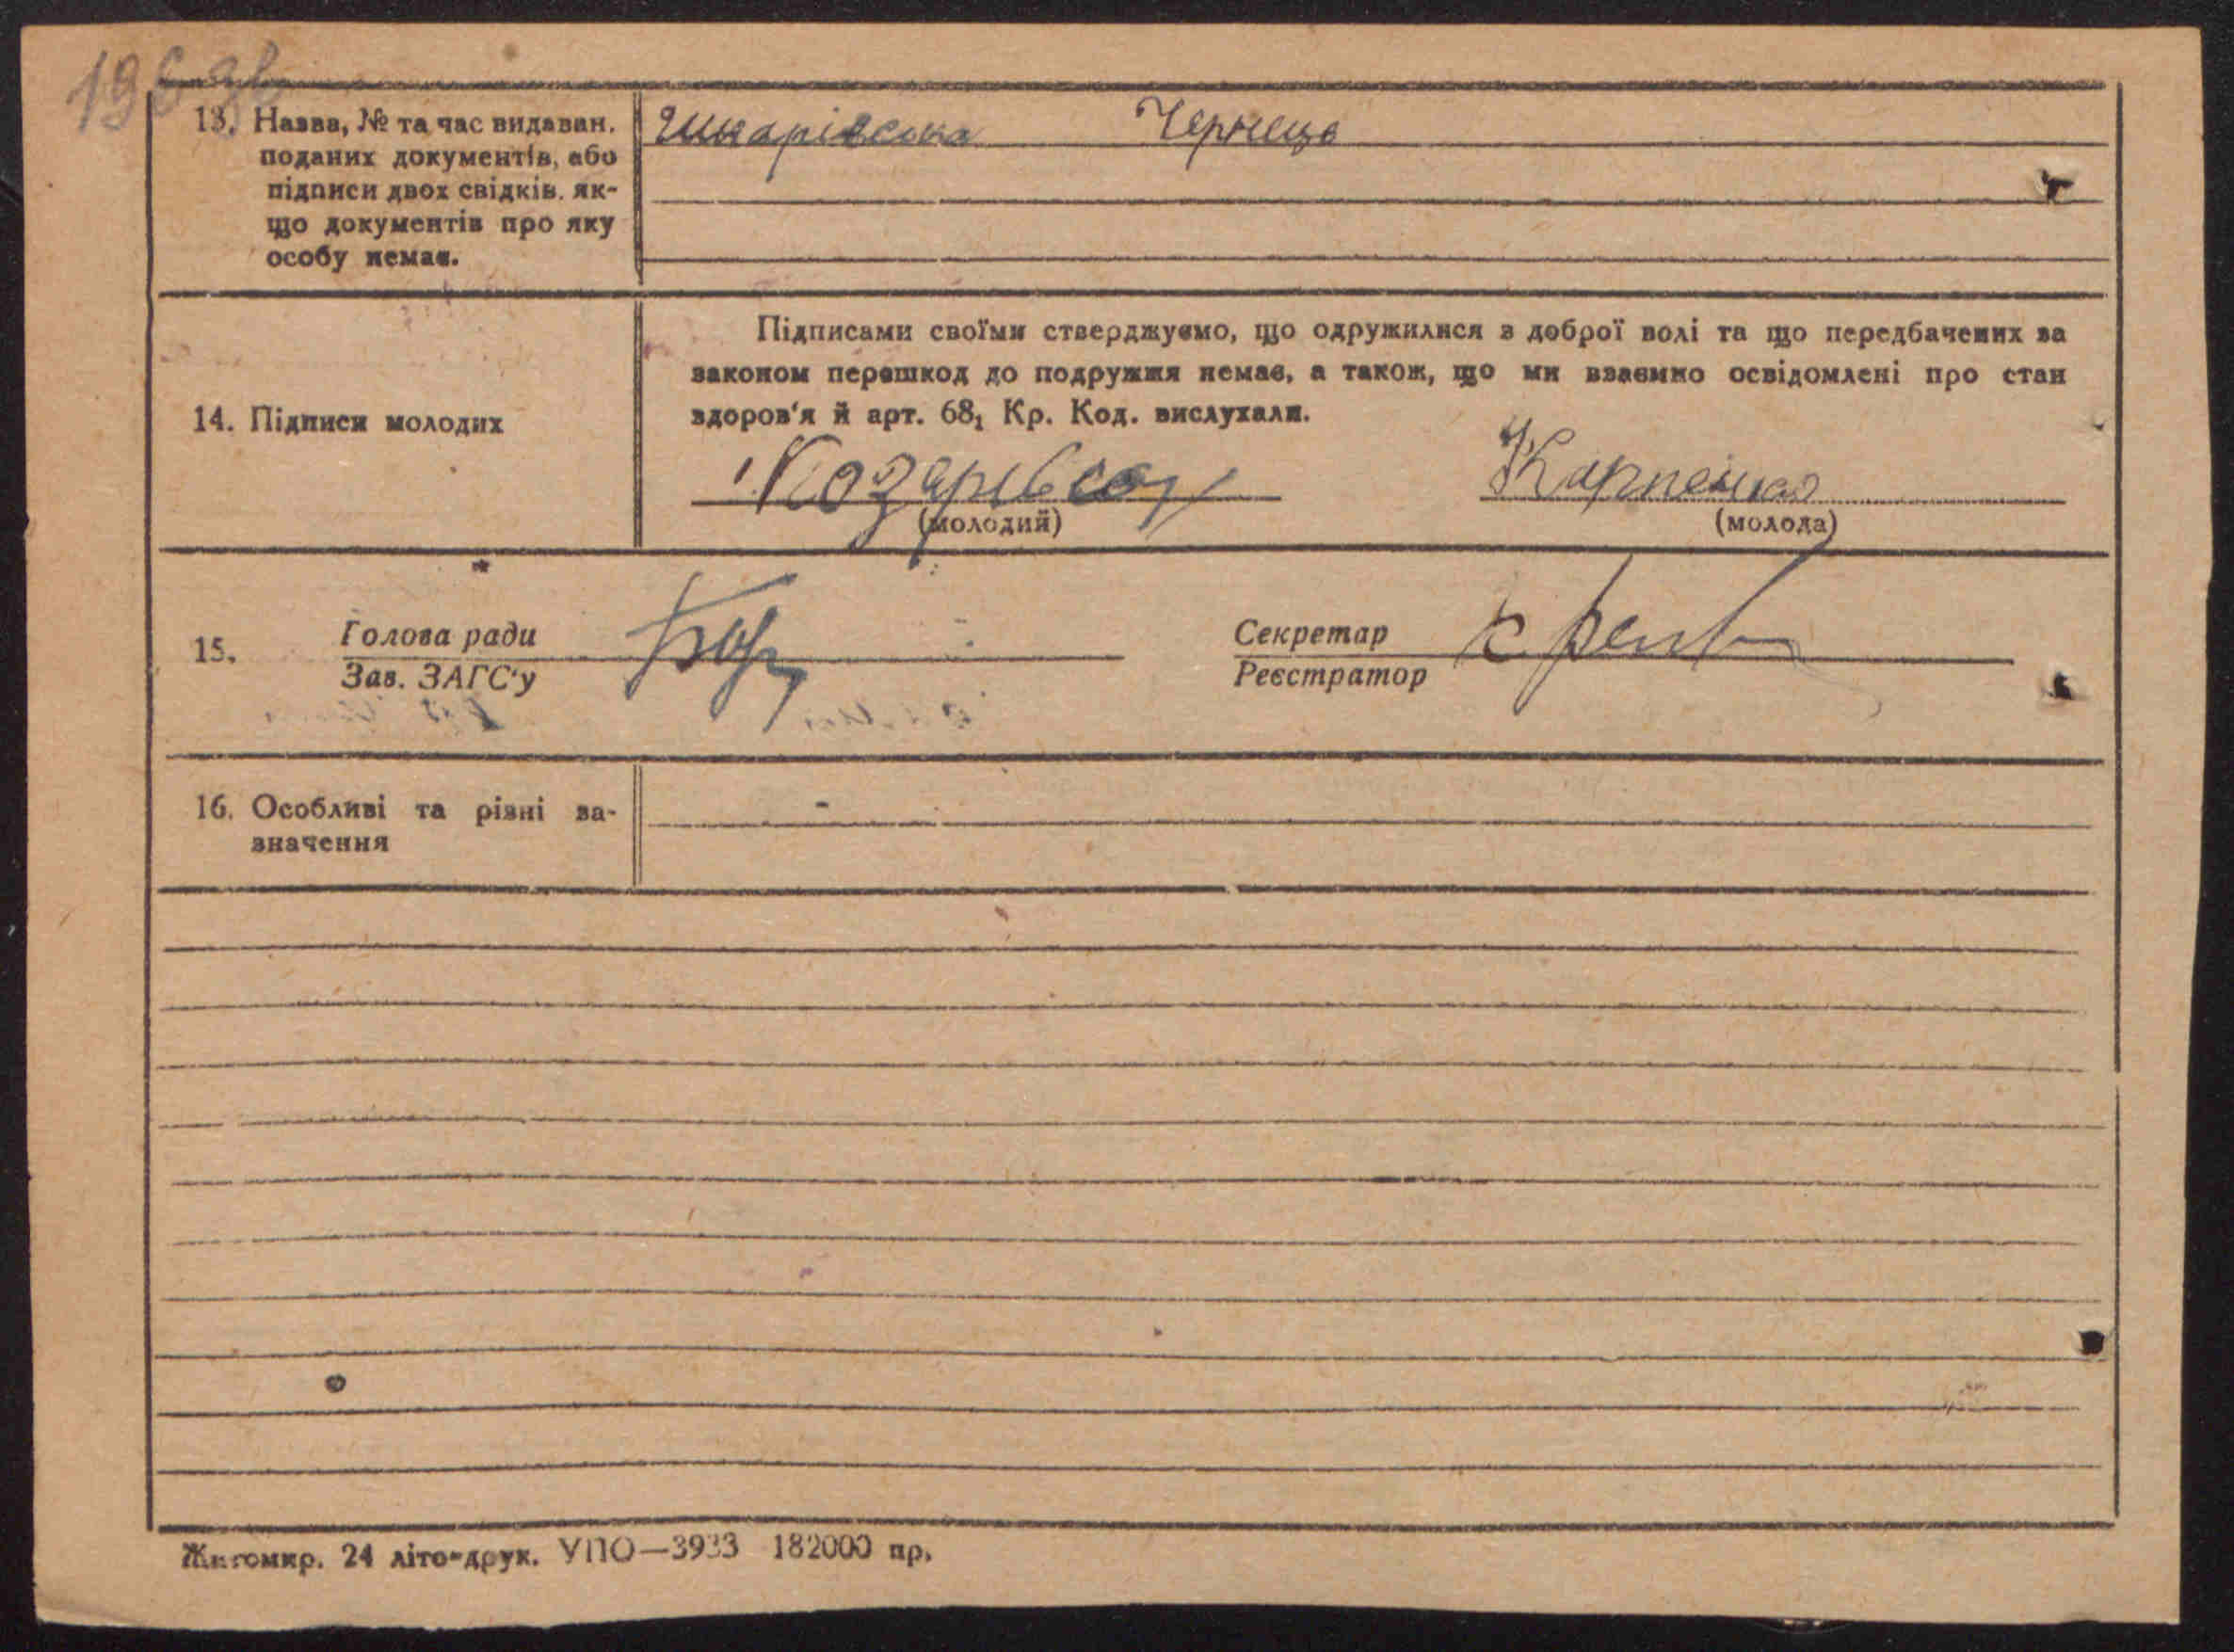 196 зв
13. Назва, № та час видаван. поданих документів, або підписи двох свідків, якщо документів про яку особу немає.
Чернець
Підписами своїми стверджуємо, що одружилися з доброї волі та що передбачених за
законом перешкод до подружжя немає, а також, що ми взаємно освідомлені про стан
здоров'я й арт. 68₁ Кр. Код. вислухали.
14. Підписи молодих
Козарівський
Карпенко
(молодий)
(молода)
15. Голова ради
Зав. ЗАГС'у
Секретар
Реєстратор
16. Особливі та різні за-
значення
Житомир. 24 літо-друк. УПО—3933 182000 пр.